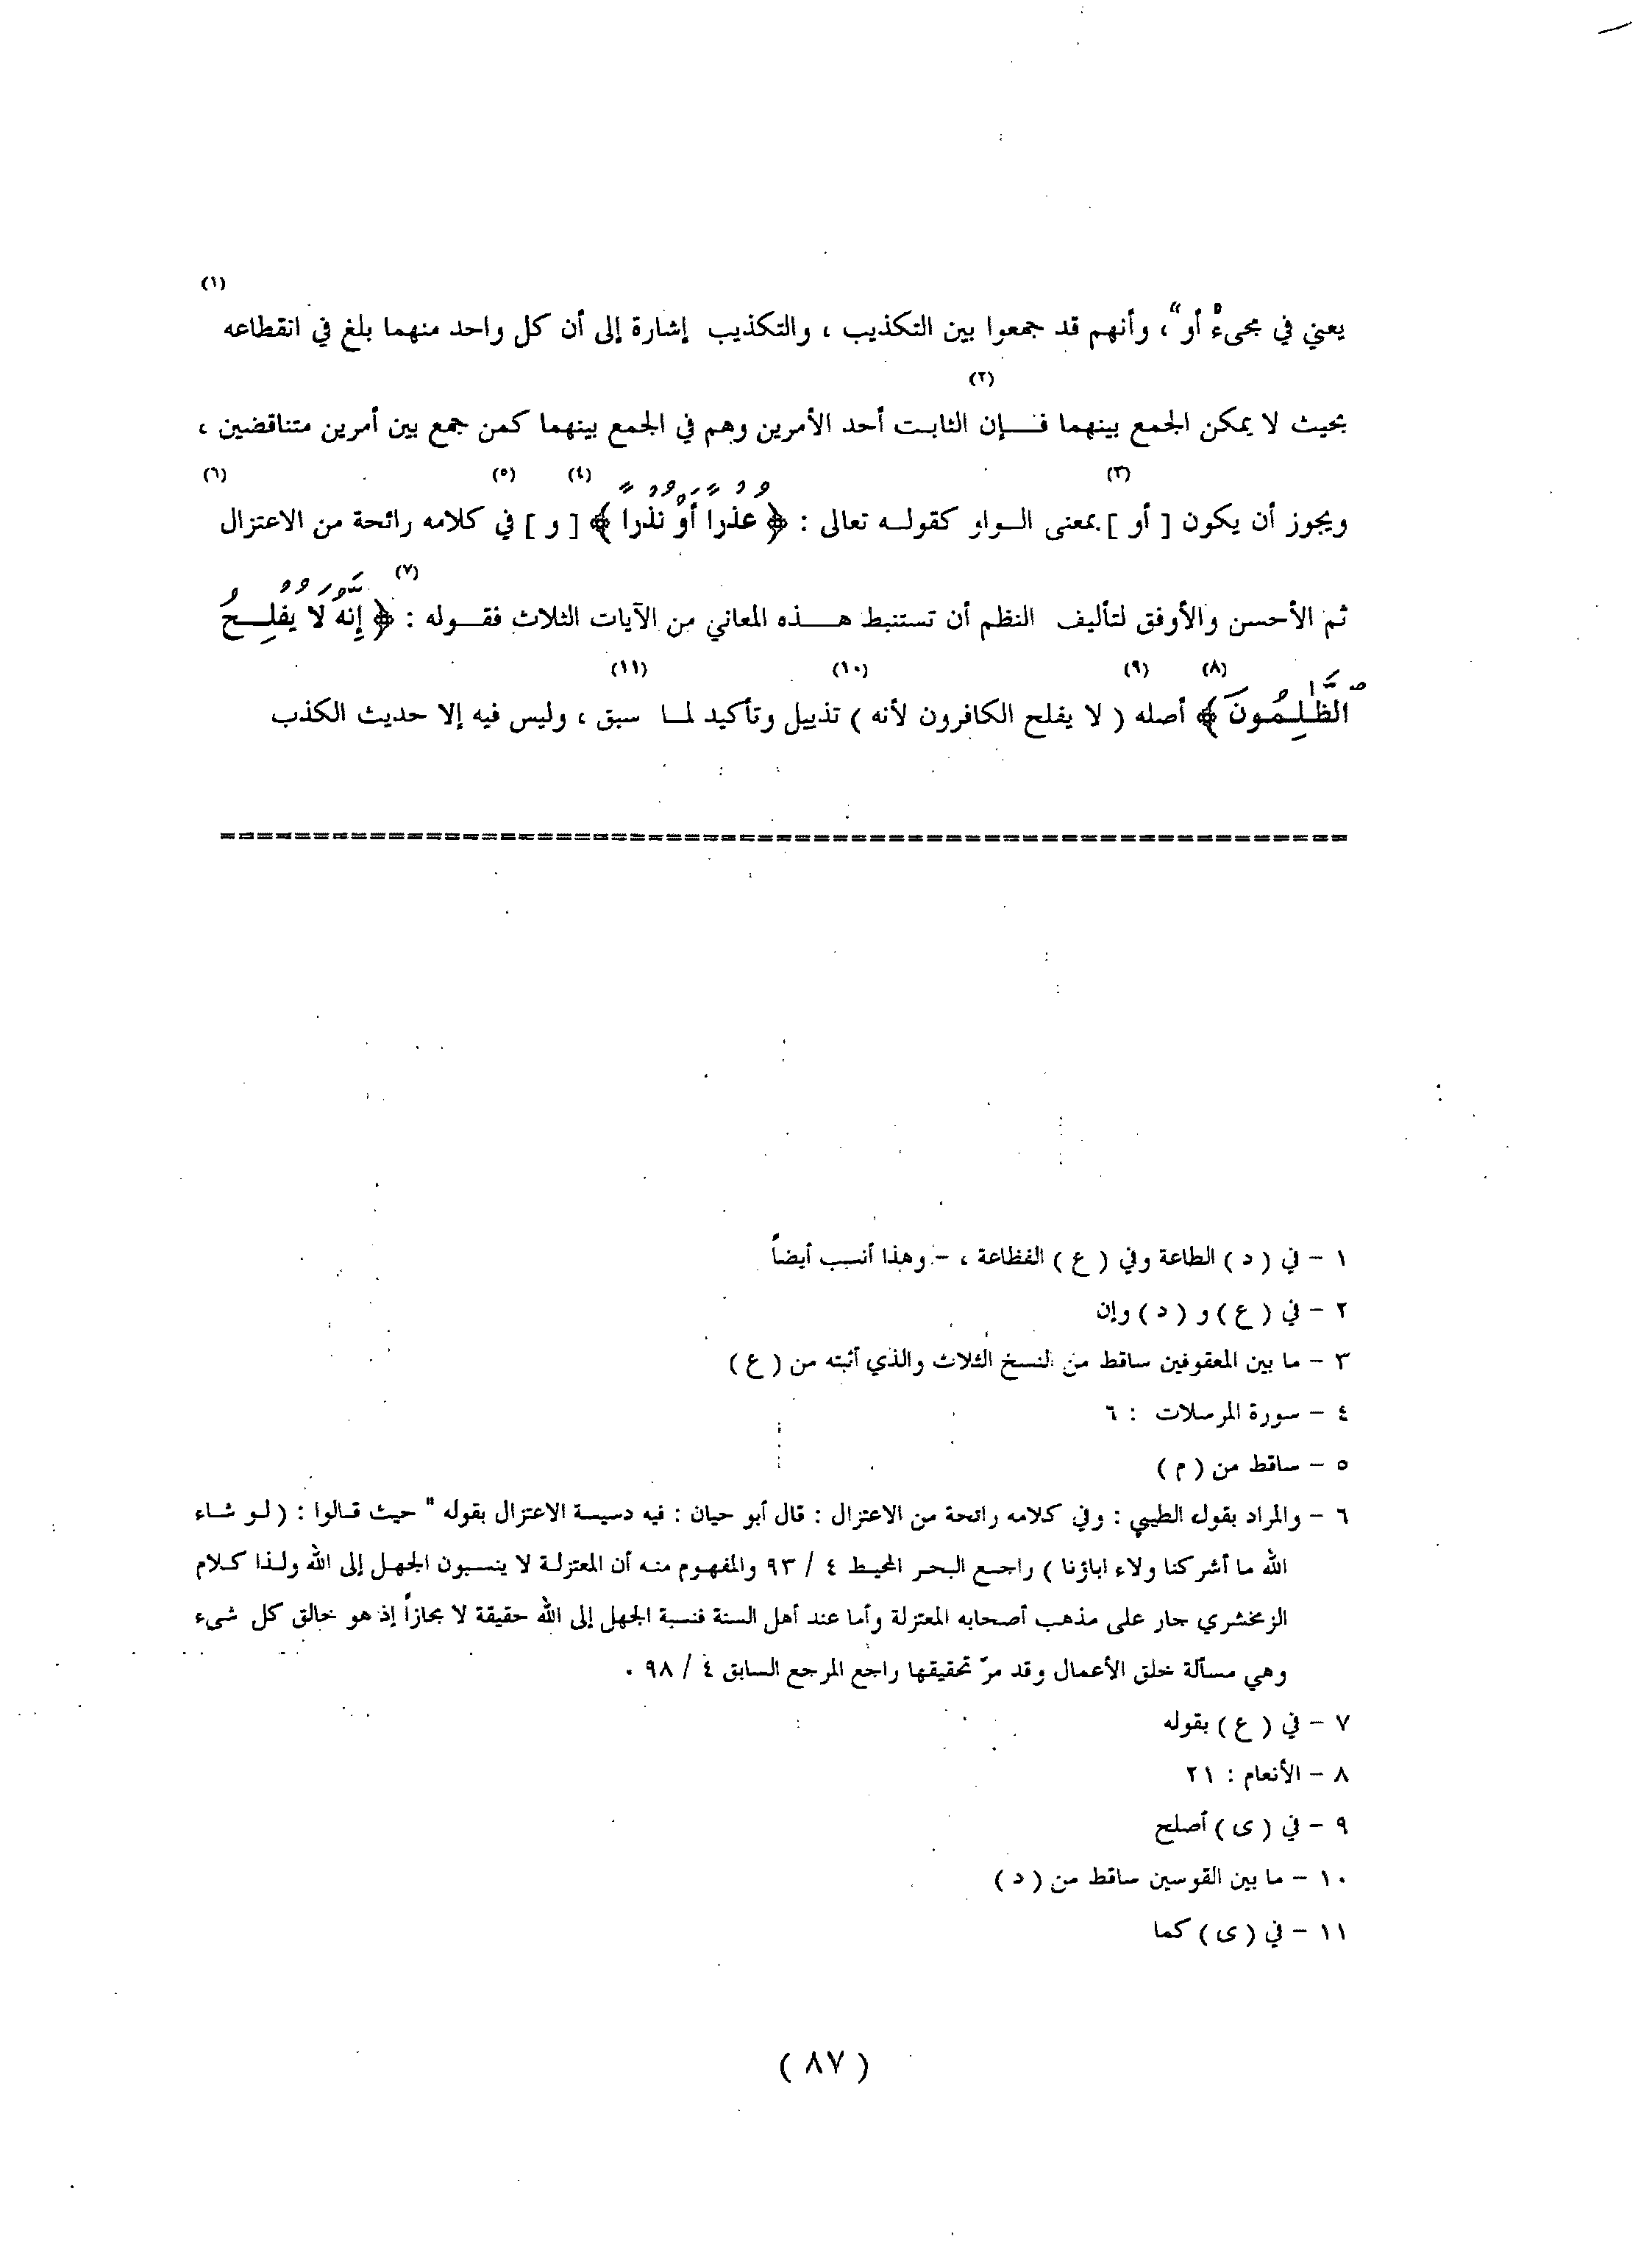 (١)
يعني في مجيء "أو"، وأنهم قد جمعوا بين التكذيب ، والتكذيب إشارة إلى أن كل واحد منهما بلغ في انقطاعه
(٢)
بحيث لا يمكن الجمع بينهما فإن الثابت أحد الأمرين وهم في الجمع بينهما كمن جمع بين أمرين متناقضين ،
(٣) (٤) (٥) (٦)
ويجوز أن يكون [ أو ] بمعنى الواو كقوله تعالى : ﴿ عُذْرًا أَوْ نُذْرًا ﴾ [ و ] في كلامه رائحة من الاعتزال
(٧)
ثم الأحسن والأوفق لتأليف النظم أن تستنبط هذه المعاني من الآيات الثلاث فقوله : ﴿ إِنَّهُ لَا يُفْلِحُ
(٨) (٩) (١٠) (١١)
الظَّٰلِمُونَ ﴾ أصله ( لا يفلح الكافرون لأنه ) تذييل وتأكيد لما سبق ، وليس فيه إلا حديث الكذب
١ - في ( د ) الطاعة وفي ( ع ) الفظاعة ، - وهذا أنسب أيضاً
٢ - في ( ع ) و ( د ) وإن
٣ - ما بين المعقوفين ساقط من النسخ الثلاث والذي أثبته من ( ع )
٤ - سورة المرسلات : ٦
٥ - ساقط من ( م )
٦ - والمراد بقول الطيبي : وفي كلامه رائحة من الاعتزال : قال أبو حيان : فيه دسيسة الاعتزال بقوله " حيث قالوا : ( لو شاء
الله ما أشركنا ولاء اباؤنا ) راجع البحر المحيط ٤ / ٩٣ والمفهوم منه أن المعتزلة لا ينسبون الجهل إلى الله ولذا كلام
الزمخشري جار على مذهب أصحابه المعتزلة وأما عند أهل السنة فنسبة الجهل إلى الله حقيقة لا مجازاً إذ هو خالق كل شيء
وهي مسألة خلق الأعمال وقد مرّ تحقيقها راجع المرجع السابق ٤ / ٩٨ .
٧ - في ( ع ) بقوله
٨ - الأنعام : ٢١
٩ - في ( ى ) أصلح
١٠ - ما بين القوسين ساقط من ( د )
١١ - في ( ى ) كما
( ٨٧ )